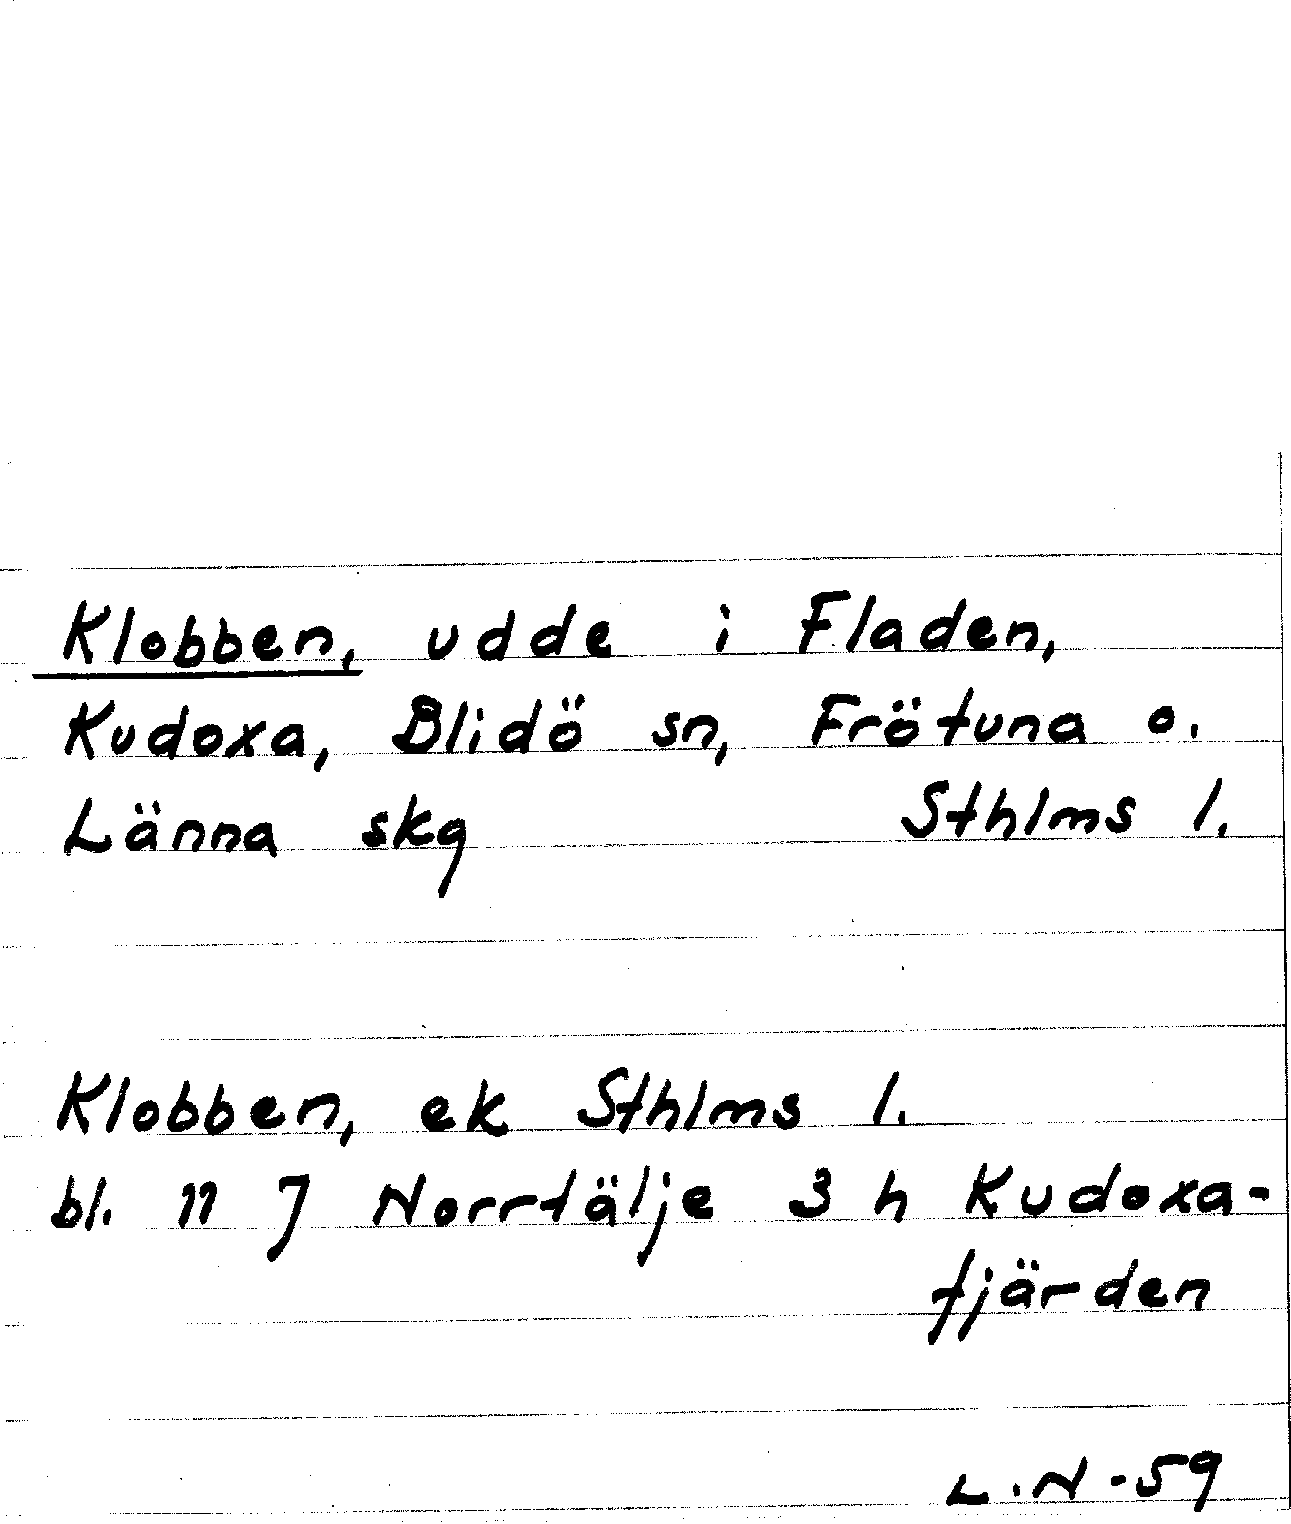 Klobben, udde i Fladen,
Kudoxa, Blidö sn, Frötuna o.
Länna skg Sthlms l.
Klobben, ek Sthlms l.
bl. 11 J Norrtälje 3 h Kudoxa-
fjärden
L.N-59